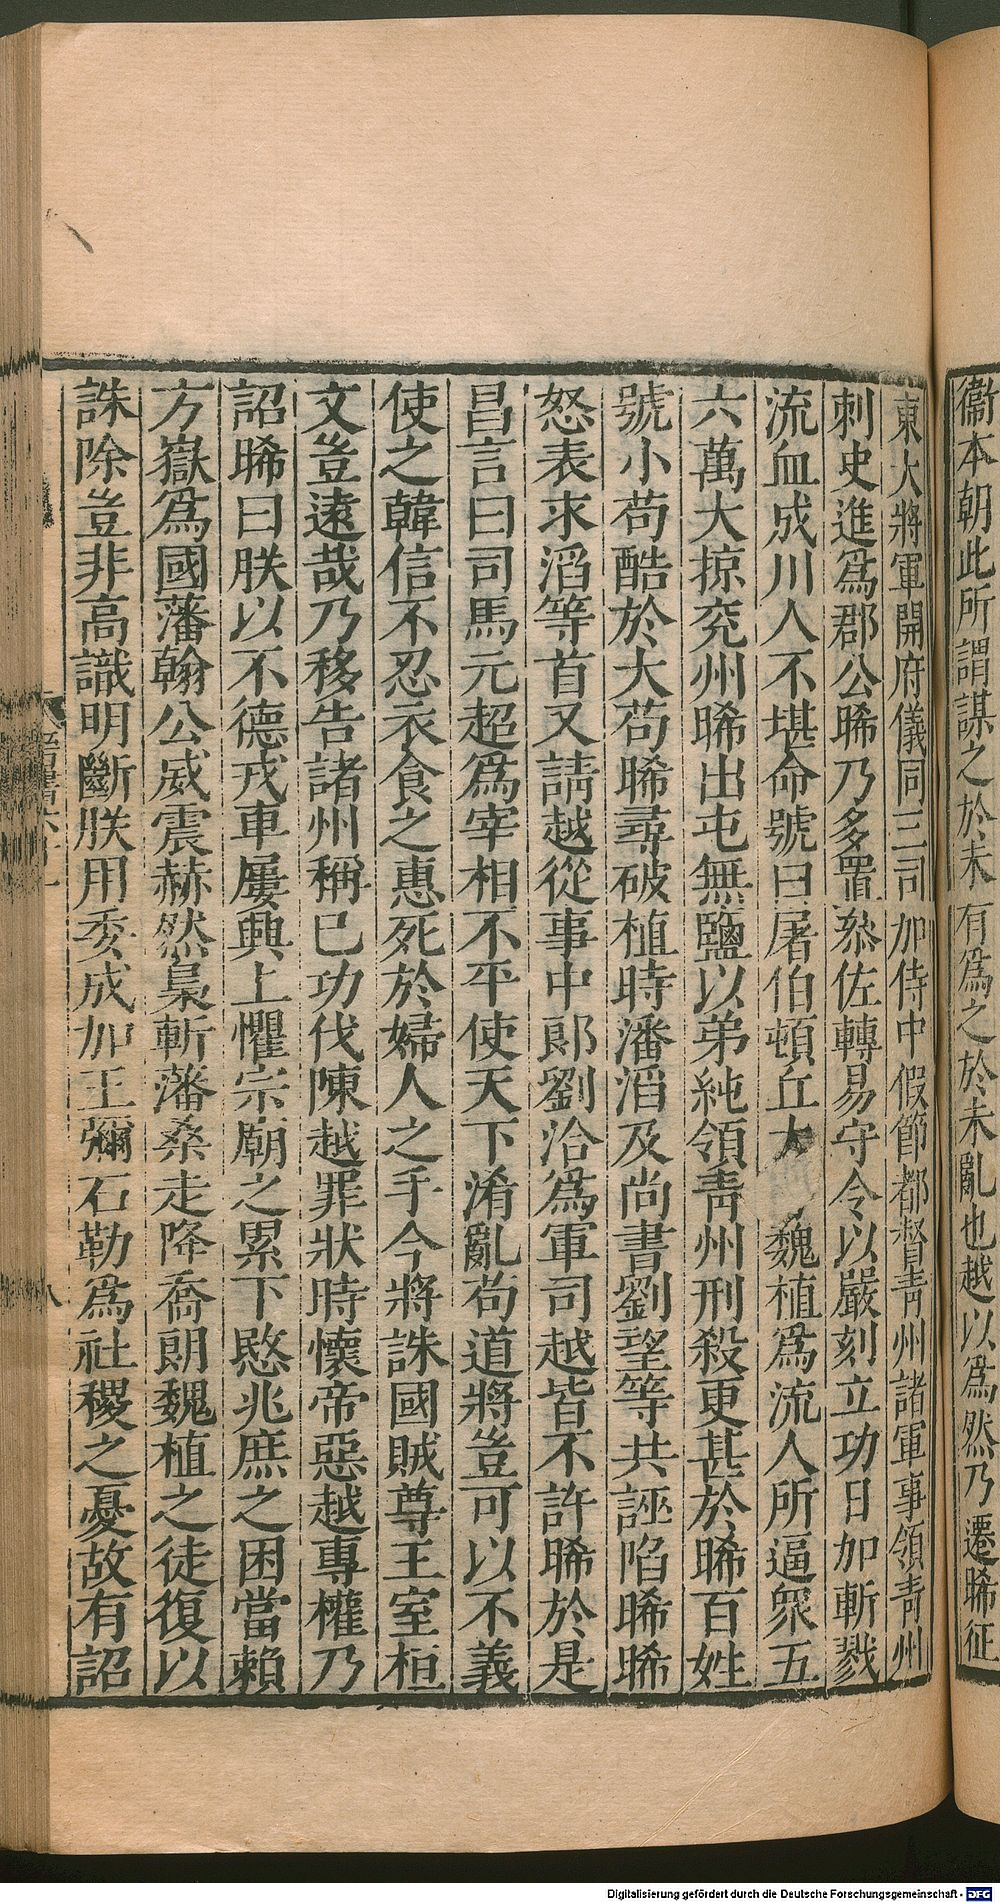 衞本朝此所謂謀之於未有爲之於未亂也越以爲然乃遷晞征
東大將軍開府儀同三司加侍中假節都督靑州諸軍事領靑州
刺史進爲郡公晞乃多置叅佐轉易守令以嚴刻立功日加斬戮
流血成川人不堪命號曰屠伯頓丘太 魏植爲流人所逼衆五
六萬大掠兖州晞出屯無鹽以弟純領靑州刑殺更甚於晞百姓
號小苟酷於大苟晞尋破植時潘滔及尚書劉望等共誣陷晞晞
怒表求滔等首又請越從事中郞劉洽爲軍司越皆不許晞於是
昌言曰司馬元超爲宰相不平使天下淆亂苟道將豈可以不義
使之韓信不忍衣食之惠死於婦人之手今將誅國賊尊王室桓
文豈遠哉乃移告諸州稱已功伐陳越罪狀時懷帝惡越專權乃
詔晞曰朕以不德戎車屢興上懼宗廟之累下愍兆庶之困當賴
方嶽爲國藩翰公威震赫然梟斬藩桑走降喬朗魏植之徒復以
誅除豈非高識明斷朕用委成加王彌石勒爲社稷之憂故有詔
Digitalisierung gefördert durch die Deutsche Forschungsgemeinschaft - DFG